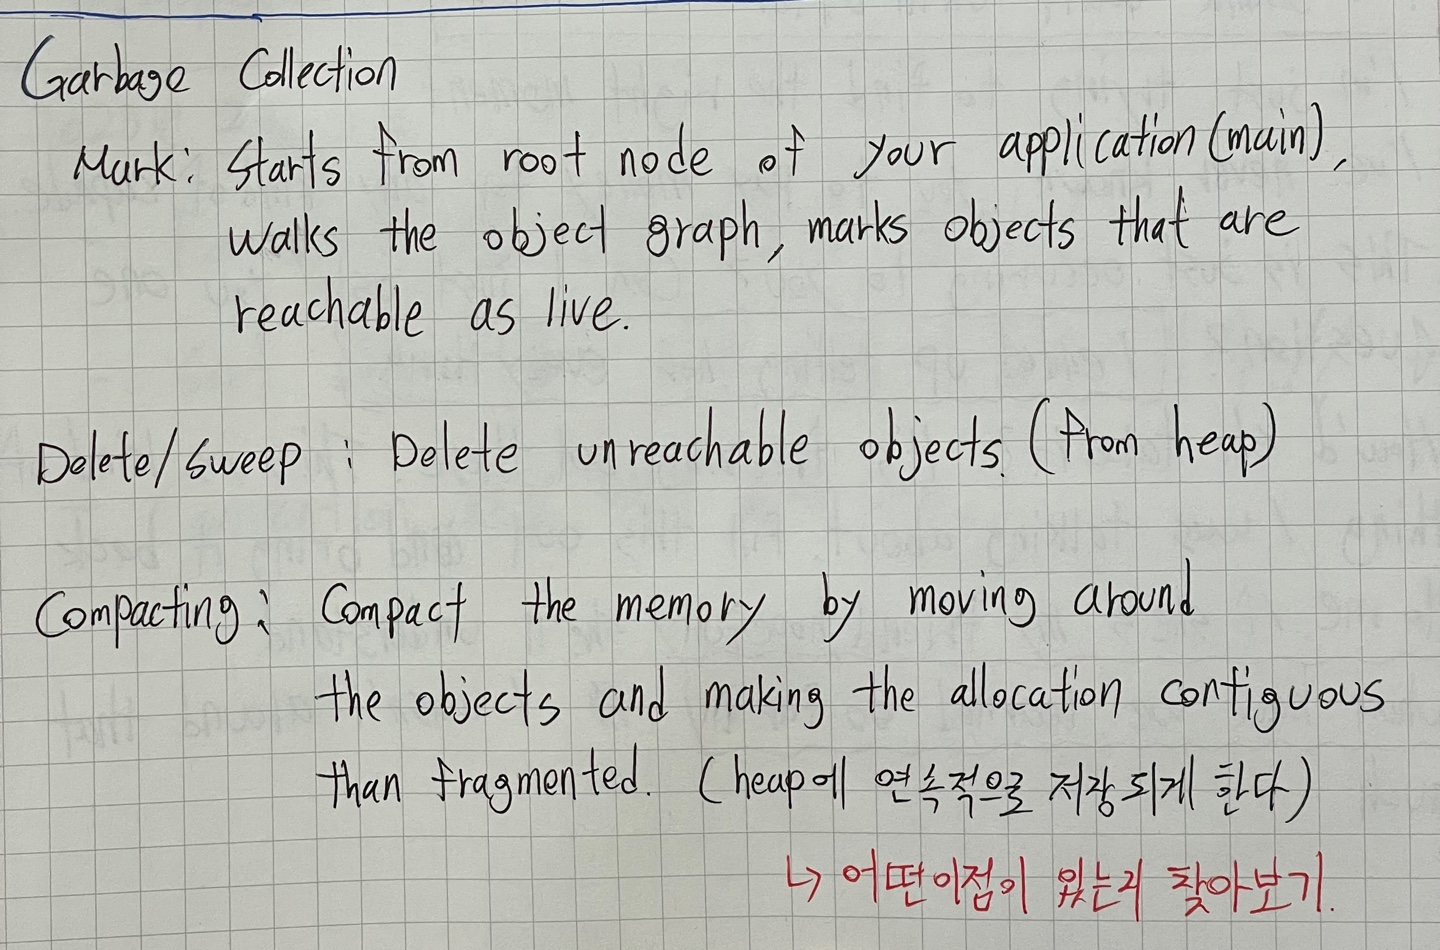 Garbage Collection
Mark: Starts from root node of your application (main),
walks the object graph, marks objects that are
reachable as live.
Delete/sweep : Delete unreachable objects. (from heap)
Compacting: Compact the memory by moving around
the objects and making the allocation contiguous
than fragmented. (heap에 연속적으로 저장되게 한다)
↳ 어떤이점이 있는지 찾아보기.